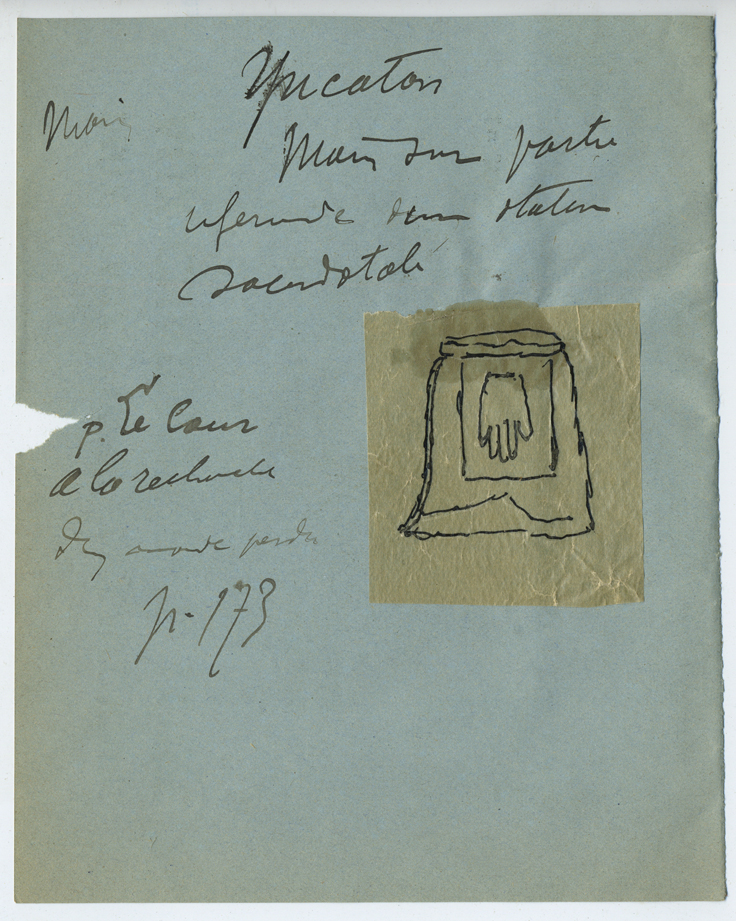 Yucatan
Main
Main sur partie
inférieure d'une statue
sacerdotale
p. Le Cour
A la recherche
d'un monde perdu
p. 173